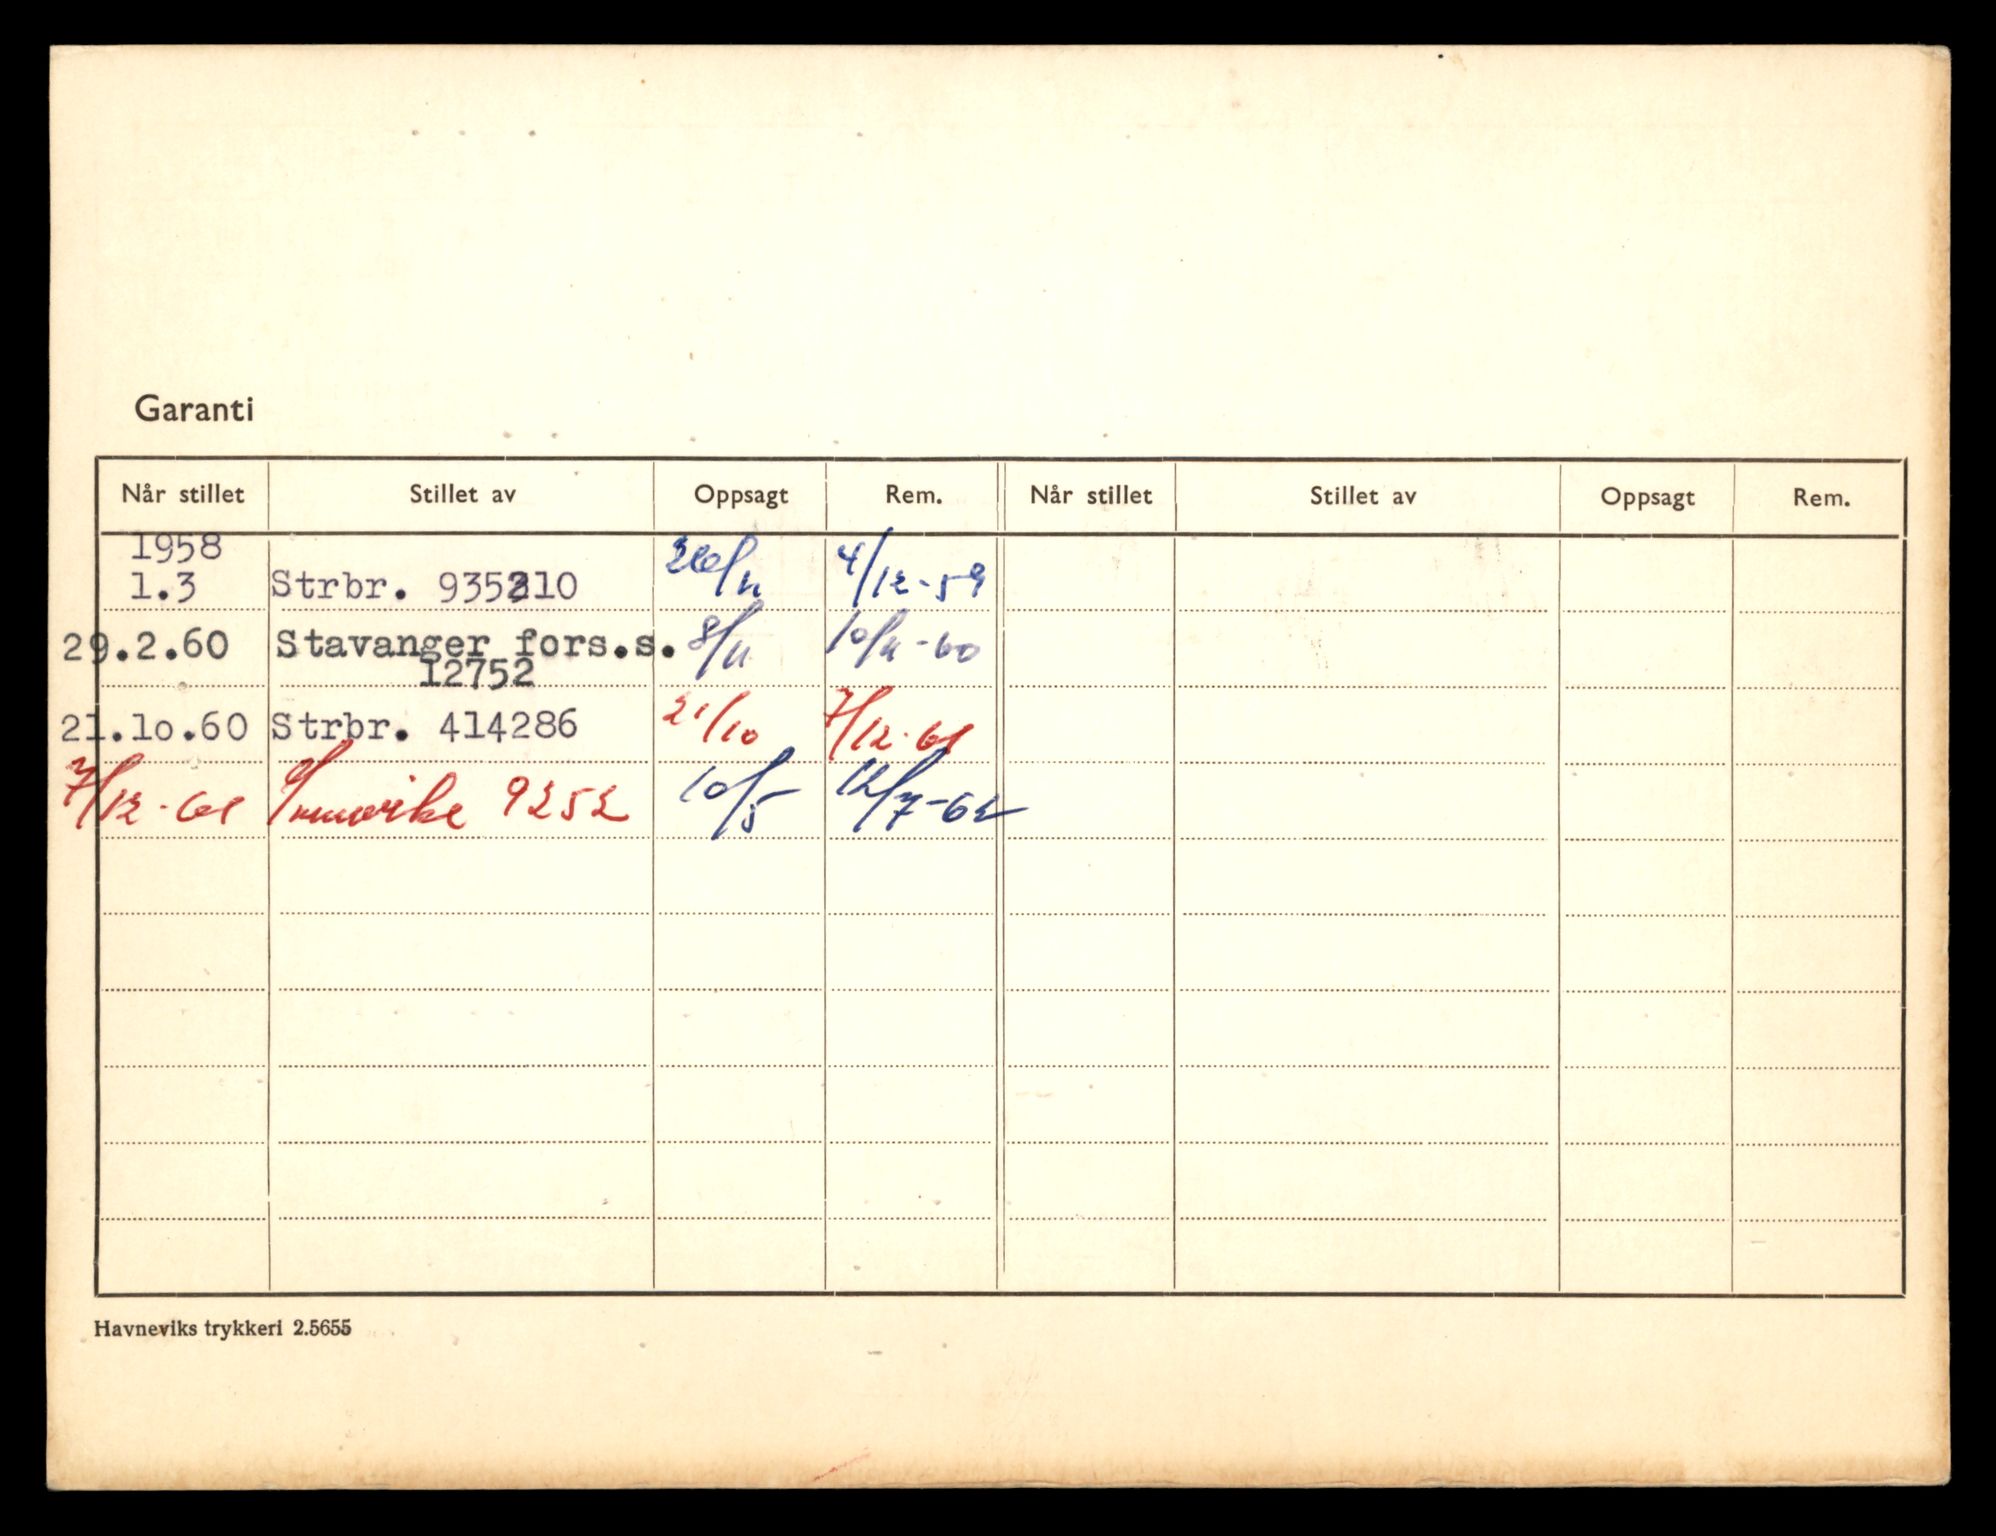 Garanti
Når stillet Stillet av Oppsagt Rem. Når stillet Stillet av Oppsagt Rem.
1958
1.3 Strbr. 935210 26/11 4/12-59
29.2.60 Stavanger fors.s. 8/11 10/11-60
12752
21.10.60 Strbr. 414286 21/10 7/12-61
7/12-61 9252 10/5 12/7-62
Havneviks trykkeri 2.5655